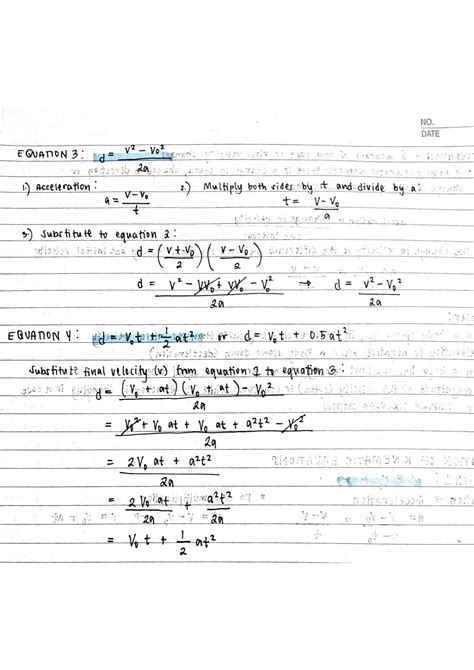 NO.
DATE
EQUATION 3: d = (v² − v₀²)/2a
1.) Acceleration: 2.) Multiply both sides by t and divide by a:
a = (v − v₀)/t t = (v − v₀)/a
3.) Substitute to equation 2:
d = ((v + v₀)/2) ((v − v₀)/2)
d = (v² − vv₀ + vv₀ − v₀²)/2a → d = (v² − v₀²)/2a
EQUATION 4: d = v₀t + 1/2 at² or d = v₀t + 0.5at²
Substitute final velocity (v) from equation 1 to equation 3:
d = ((v₀ + at)(v₀ + at) − v₀²)/2a
= (v₀² + v₀at + v₀at + a²t² − v₀²)/2a
= (2v₀at + a²t²)/2a
= 2v₀at/2a + a²t²/2a
= v₀t + 1/2 at²